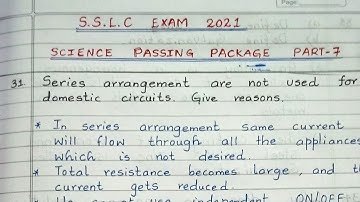 Page
S.S.L.C EXAM 2021
SCIENCE PASSING PACKAGE PART-7
31. Series arrangement are not used for
domestic circuits. Give reasons.
* In series arrangement same current
will flow through all the appliances
which is not desired.
* Total resistance becomes large, and th
current gets reduced.
independent ON/OFF